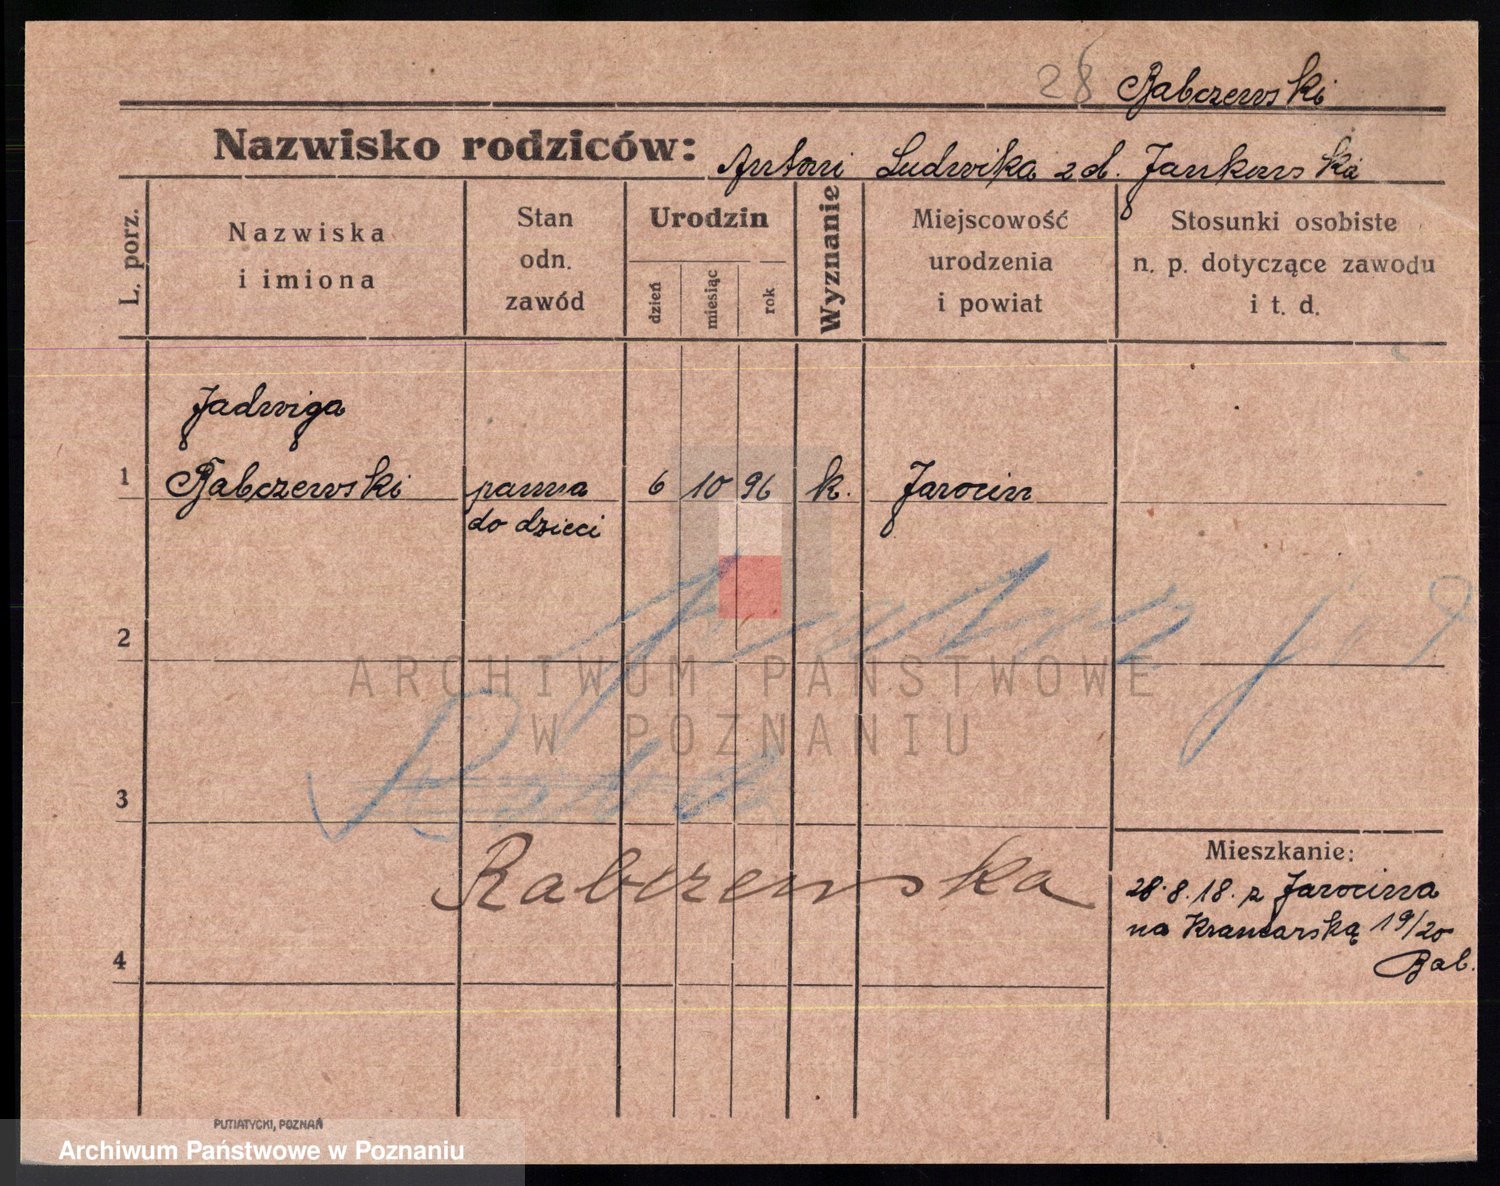 28 Rabczewski
Nazwisko rodziców: Antoni Ludwika z d. Jankowska
L. porz.
Nazwiska
i imiona
Stan
odn.
zawód
Urodzin
dzień
miesiąc
rok
Wyznanie
Miejscowość
urodzenia
i powiat
Stosunki osobiste
n. p. dotyczące zawodu
i t. d.
Jadwiga
1 Rabczewski panna 6 10 96 k. Jarocin
do dzieci
2
ARCHIWUM PAŃSTWOWE
W POZNANIU
3
Rabczewska
Mieszkanie:
28.8.18. z Jarocina
na Kramarską 19/20
Rab.
4
PUTIATYCKI, POZNAŃ
Archiwum Państwowe w Poznaniu